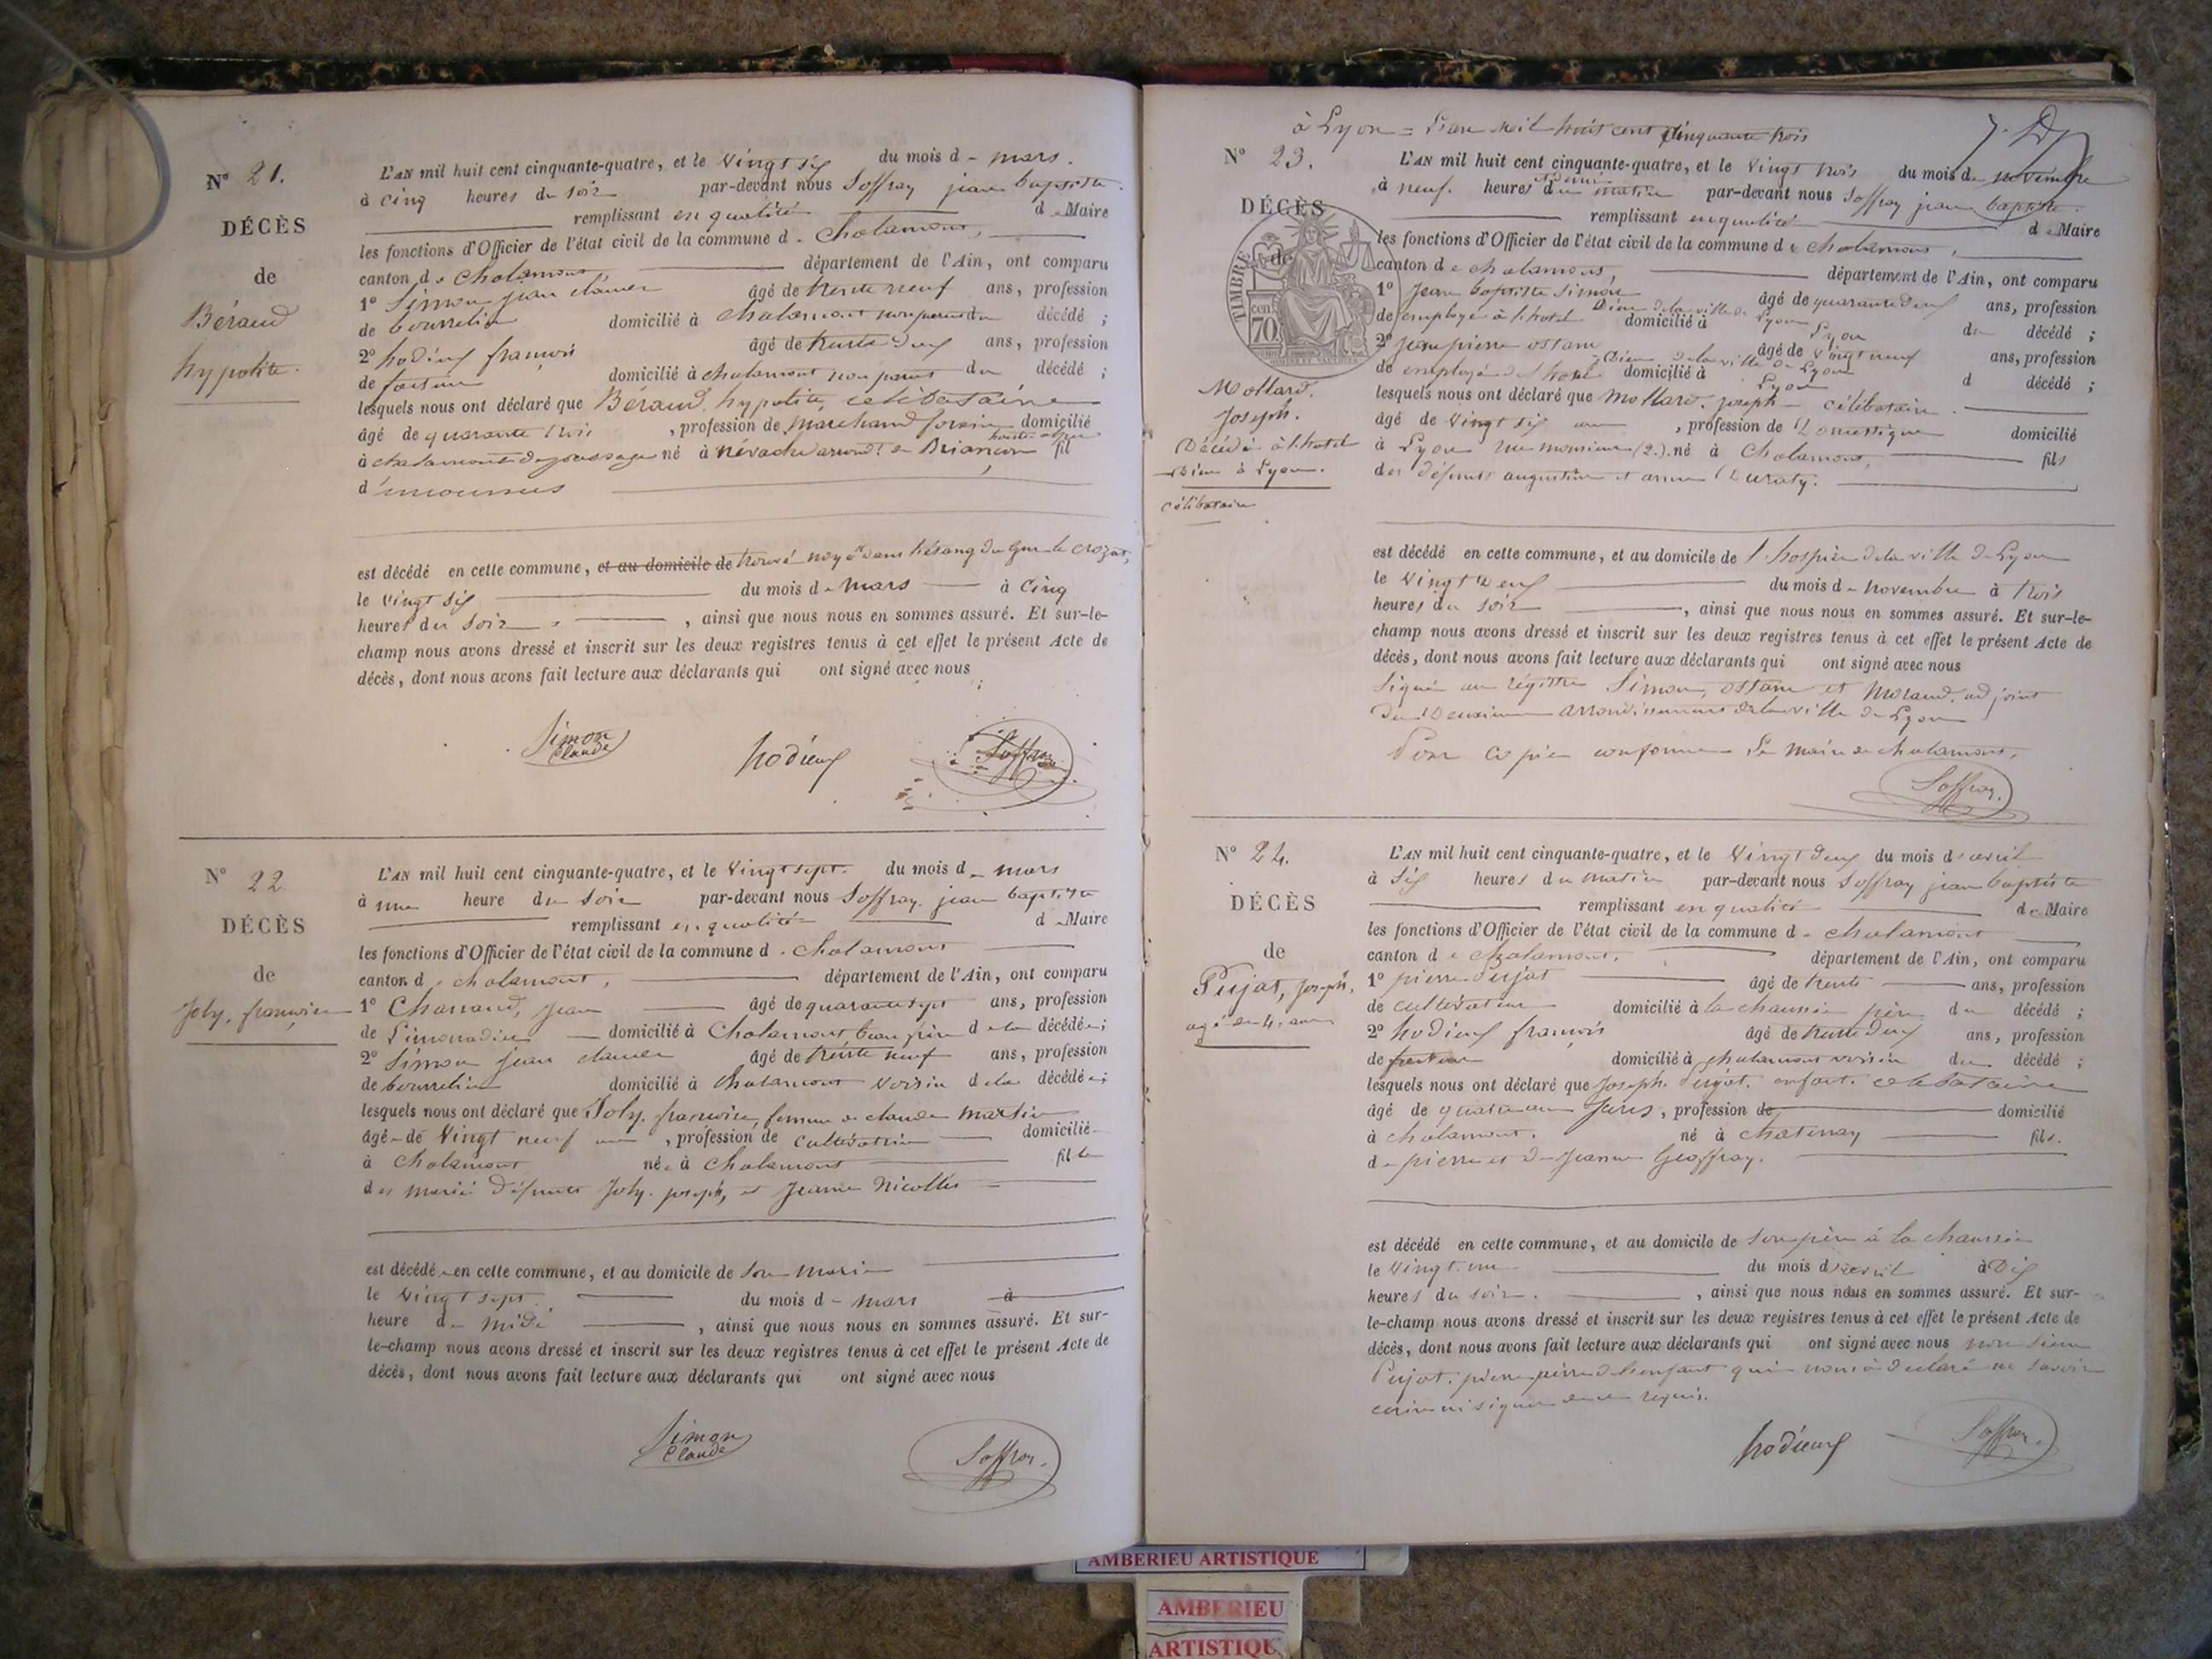 N° 21.
DÉCÈS
de
Béraud
hypolite.
L'AN mil huit cent cinquante-quatre, et le vingt six du mois de mars.
à cinq heures du soir par-devant nous Soffray jean baptiste
remplissant en qualité de Maire
les fonctions d'Officier de l'état civil de la commune de Chalamont,
canton de Chalamont, département de l'Ain, ont comparu
1° Simon jean claude âgé de trente neuf ans, profession
de bourrelier domicilié à Chalamont non parent du décédé ;
2° hodieux françois âgé de trente deux ans, profession
de facteur domicilié à chalamont non parent du décédé ;
lesquels nous ont déclaré que Béraud, hypolite, célibataire
âgé de quarante trois , profession de Marchand forain domicilié
hautes alpes
à chalamont de passage né à névache arrond.t de Briançon fil
d'inconnus
est décédé en cette commune, et au domicile de trouvé noyé dans l'étang du
le vingt six du mois de mars à cinq
heures du soir , ainsi que nous nous en sommes assuré. Et sur-le-
champ nous avons dressé et inscrit sur les deux registres tenus à cet effet le présent Acte de
décès, dont nous avons fait lecture aux déclarants qui ont signé avec nous
Simon
Claude
hodieux
Soffray
N° 22
DÉCÈS
de
Joly, françoise
L'AN mil huit cent cinquante-quatre, et le vingt sept. du mois de mars
à une heure du soir par-devant nous Soffray jean baptiste
remplissant en qualité de Maire
les fonctions d'Officier de l'état civil de la commune de Chalamont
canton de chalamont, département de l'Ain, ont comparu
1° jean âgé de quarante sept ans, profession
de Limonadier domicilié à Chalamont beau père de la décédée ;
2° Simon jean claude âgé de trente neuf ans, profession
de bourrelier domicilié à Chalamont voisin de la décédée ;
lesquels nous ont déclaré que Joly, françoise, femme de claude Martin
âgée de vingt neuf ans , profession de cultivatrice domiciliée
à Chalamont née à Chalamont fille
des mariés défunts Joly joseph, et Jeanne Nicollet
est décédée en cette commune, et au domicile de son mari
le vingt sept du mois de mars à
heure de midi , ainsi que nous nous en sommes assuré. Et sur-
le-champ nous avons dressé et inscrit sur les deux registres tenus à cet effet le présent Acte de
décès, dont nous avons fait lecture aux déclarants qui ont signé avec nous
Simon
Claude
Soffray.
à Lyon = L'an mil huit cent cinquante trois
N° 23.
DÉCÈS
de
TIMBRE
70
Mollard.
Joseph.
Décédé à l'hotel
Dieu à Lyon.
célibataire
L'AN mil huit cent cinquante-quatre, et le vingt trois du mois de novembre
à neuf heures du matin par-devant nous Soffray jean baptiste.
remplissant en qualité de Maire
les fonctions d'Officier de l'état civil de la commune de Chalamont,
canton de chalamont, département de l'Ain, ont comparu
1° jean baptiste Simon âgé de quarante deux ans, profession
de employé à l'hotel Dieu de la ville de Lyon domicilié à Lyon du décédé ;
2° jean pierre ostam âgé de vingt neuf ans, profession
de employé de l'hotel Dieu de la ville de Lyon domicilié à Lyon d décédé ;
lesquels nous ont déclaré que Mollard, joseph célibataire
âgé de vingt six ans , profession de Domestique domicilié
à Lyon rue monsieur (2.) né à Chalamont, fils
des défunts augustin et anne Duraty.
est décédé en cette commune, et au domicile de l'hospice de la ville de Lyon
le vingt deux du mois de novembre à trois
heures du soir , ainsi que nous nous en sommes assuré. Et sur-le-
champ nous avons dressé et inscrit sur les deux registres tenus à cet effet le présent Acte de
décès, dont nous avons fait lecture aux déclarants qui ont signé avec nous
Signé au régistre Simon, ostam et Morand, adjoint
du Deuxieme arrondissement de la ville de Lyon
Pour copie conforme Le maire de chalamont,
Soffray.
N° 24.
DÉCÈS
de
Pujat, Joseph,
agé de 4. ans
L'AN mil huit cent cinquante-quatre, et le vingt deux du mois d'avril
à six heures du matin par-devant nous Soffray jean baptiste
remplissant en qualité de Maire
les fonctions d'Officier de l'état civil de la commune de chalamont
canton de chalamont. département de l'Ain, ont comparu
1° pierre Pujat âgé de trente ans, profession
de cultivateur domicilié à la chaussée père du décédé ;
2° hodieux françois âgé de trente deux ans, profession
de facteur domicilié à chalamont voisin du décédé ;
lesquels nous ont déclaré que joseph Pujat. enfant. célibataire
âgé de quatre ans , profession de domicilié
à chalamont. né à chatenay fils.
de pierre et de Jeanne Geoffray.
est décédé en cette commune, et au domicile de son père à la chaussée
le vingt un du mois d'avril à Dix
heures du soir. , ainsi que nous nous en sommes assuré. Et sur-
le-champ nous avons dressé et inscrit sur les deux registres tenus à cet effet le présent Acte de
décès, dont nous avons fait lecture aux déclarants qui ont signé avec nous non sieur
Pujat. pierre père de l'enfant qui nous a déclaré ne savoir
écrire ni signer de ce requis.
hodieux
Soffray.
AMBERIEU ARTISTIQUE
AMBERIEU
ARTISTIQUE